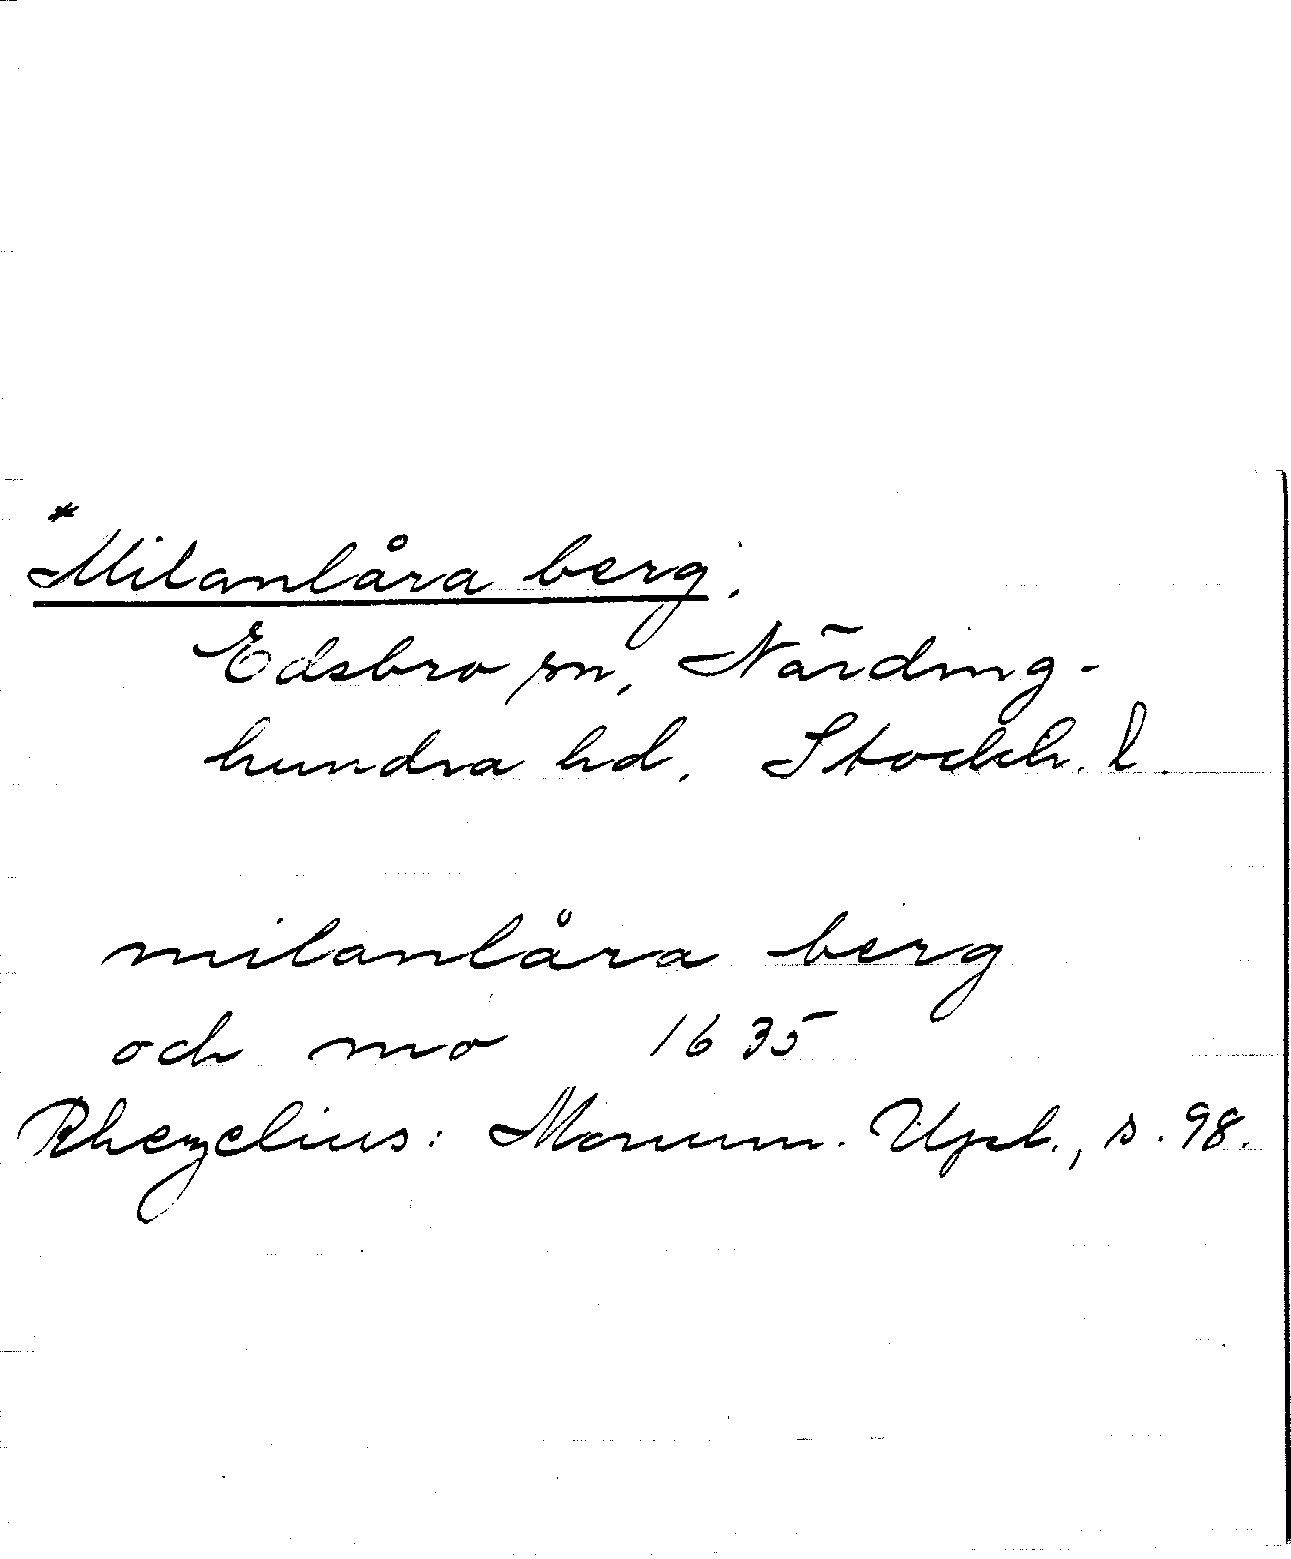 *Milanlåra berg.
Edsbro sn, Närding-
hundra hd. Stockh. l.
milanlåra berg
och mo 1635
Rhezelius: Monum. Upl., s. 98.